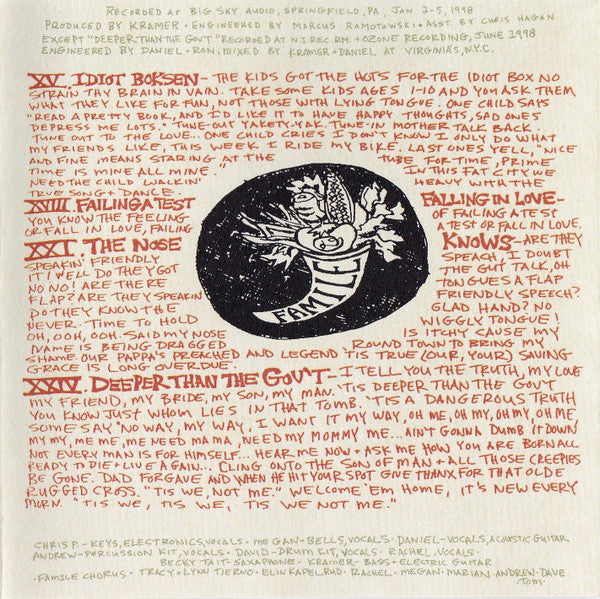 RECORDED AT BIG SKY AUDIO, SPRINGFIELD, PA, JAN 2-5, 1998
PRODUCED BY KRAMER · ENGINEERED BY MARCUS RAMOTOWSKI · ASST. BY CHRIS HAGAN
EXCEPT "DEEPER THAN THE GOV'T" RECORDED AT N.J. REC. RM. + OZONE RECORDING, JUNE 1998
ENGINEERED BY DANIEL + RON. MIXED BY KRAMER + DANIEL AT VIRGINIA'S, N.Y.C.
XV. IDIOT BOKSEN - THE KIDS GOT THE HOTS FOR THE IDIOT BOX NO
STRAIN THY BRAIN IN VAIN. TAKE SOME KIDS AGES 1-10 AND YOU ASK THEM
WHAT THEY LIKE FOR FUN, NOT THOSE WITH LYING TONGUE. ONE CHILD SAYS
"READ A PRETTY BOOK, AND I'D LIKE IT TO HAVE HAPPY THOUGHTS, SAD ONES
DEPRESS ME LOTS." TUNE-OUT YAKETY-YAK. TUNE-IN MOTHER TALK BACK.
TUNE OUT TO THE LOVE.. ONE CHILD CRIES I DON'T KNOW I ONLY DO WHAT
MY FRIENDS LIKE, THIS WEEK I RIDE MY BIKE. LAST ONES YELL, "NICE
AND FINE MEANS STARING AT THE TUBE FOR TIME, PRIME
TIME IS MINE ALL MINE." IN THIS FAT CITY WE
NEED THE CHILD WALKIN' HEAVY WITH THE
TRUE SONG + DANCE.
XVIII FAILING A TEST FALLING IN LOVE -
YOU KNOW THE FEELING OF FAILING A TEST
OR FALL IN LOVE, FAILING A TEST OR FALL IN LOVE.
XXI. THE NOSE KNOWS - ARE THEY
SPEAKIN' FRIENDLY SPEACH, I DOUBT
IT! WELL DO THEY GOT THE GUT TALK, OH
NO NO! ARE THERE TONGUES A FLAP
FLAP? ARE THEY SPEAKIN FRIENDLY SPEECH?
DO THEY KNOW THE GLAD HAND? NO
NEVER. TIME TO HOLD WIGGLY TONGUE!
OH, OOH, OOH. SAID MY NOSE IS ITCHY CAUSE MY
NAME IS BEING DRAGGED ROUND TOWN TO BRING MY
SHAME. OUR PAPPA'S PREACHED AND LEGEND 'TIS TRUE (OUR, YOUR) SAVING
GRACE IS LONG OVERDUE.
XXIV. DEEPER THAN THE GOV'T - I TELL YOU THE TRUTH, MY LOVE
MY FRIEND, MY BRIDE, MY SON, MY MAN. 'TIS DEEPER THAN THE GOVT
YOU KNOW JUST WHOM LIES IN THAT TOMB. 'TIS A DANGEROUS TRUTH
SOME SAY "NO WAY, MY WAY, I WANT IT MY WAY, OH ME, OH MY, OH MY, OH ME
MY MY, ME ME, ME NEED MAMA, NEED MY MOMMY ME... AIN'T GONNA DUMB IT DOWN
NOT EVERY MAN IS FOR HIMSELF... HEAR ME NOW + ASK ME HOW YOU ARE BORN ALL
READY TO DIE + LIVE AGAIN... CLING ONTO THE SON OF MAN + ALL THOSE CREEPIES
BE GONE. DAD FORGAVE AND WHEN HE HIT YOUR SPOT GIVE THANX FOR THAT OLDE
RUGGED CROSS. "TIS WE, NOT ME." WELCOME 'EM HOME, IT'S NEW EVERY
MORN. "TIS WE, TIS WE, TIS WE NOT ME."
FAMILE
CHRIS P. - KEYS, ELECTRONICS, VOCALS · MEGAN - BELLS, VOCALS · DANIEL - VOCALS, ACOUSTIC GUITAR
ANDREW - PERCUSSION KIT, VOCALS · DAVID - DRUM KIT, VOCALS · RACHEL, VOCALS ·
BECKY TAIT - SAXAPHONE · KRAMER - BASS + ELECTRIC GUITAR
· FAMILE CHORUS - TRACY + LYNN TIERNO · ELIN KAPELRUD · RACHEL · MEGAN · MARIAN · ANDREW · DAVE
TOM ·